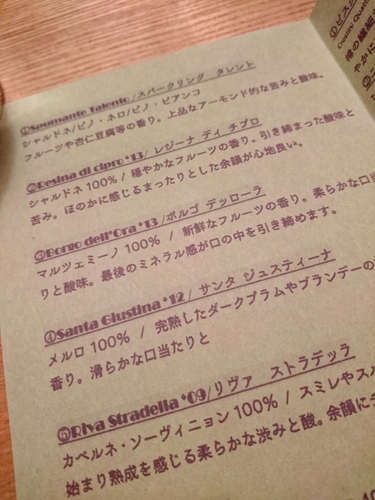 ①Spumante Talento/スパークリング タレント
シャルドネ/ピノ・ネロ/ピノ・ビアンコ
フルーツや杏仁豆腐等の香り。上品なアーモンド的な苦みと酸味。
②Resina di cipro *13/ レジーナ ディ チプロ
シャルドネ 100% / 穏やかなフルーツの香り。引き締まった酸味と
苦み。ほのかに感じるまったりとした余韻が心地良い。
③Borgo dell'Ora *13 /ボルゴ デッローラ
マルツェミーノ 100% / 新鮮なフルーツの香り。柔らかな口当
りと酸味。最後のミネラル感が口の中を引き締めます。
④Santa Giustina *12/ サンタ ジュスティーナ
メルロ 100% / 完熟したダークプラムやブランデーの
香り。滑らかな口当たりと
⑤Riva Stradella *09/リヴァ ストラデッラ
カベルネ・ソーヴィニョン 100% / スミレやス
始まり熟成を感じる柔らかな渋みと酸。余韻に